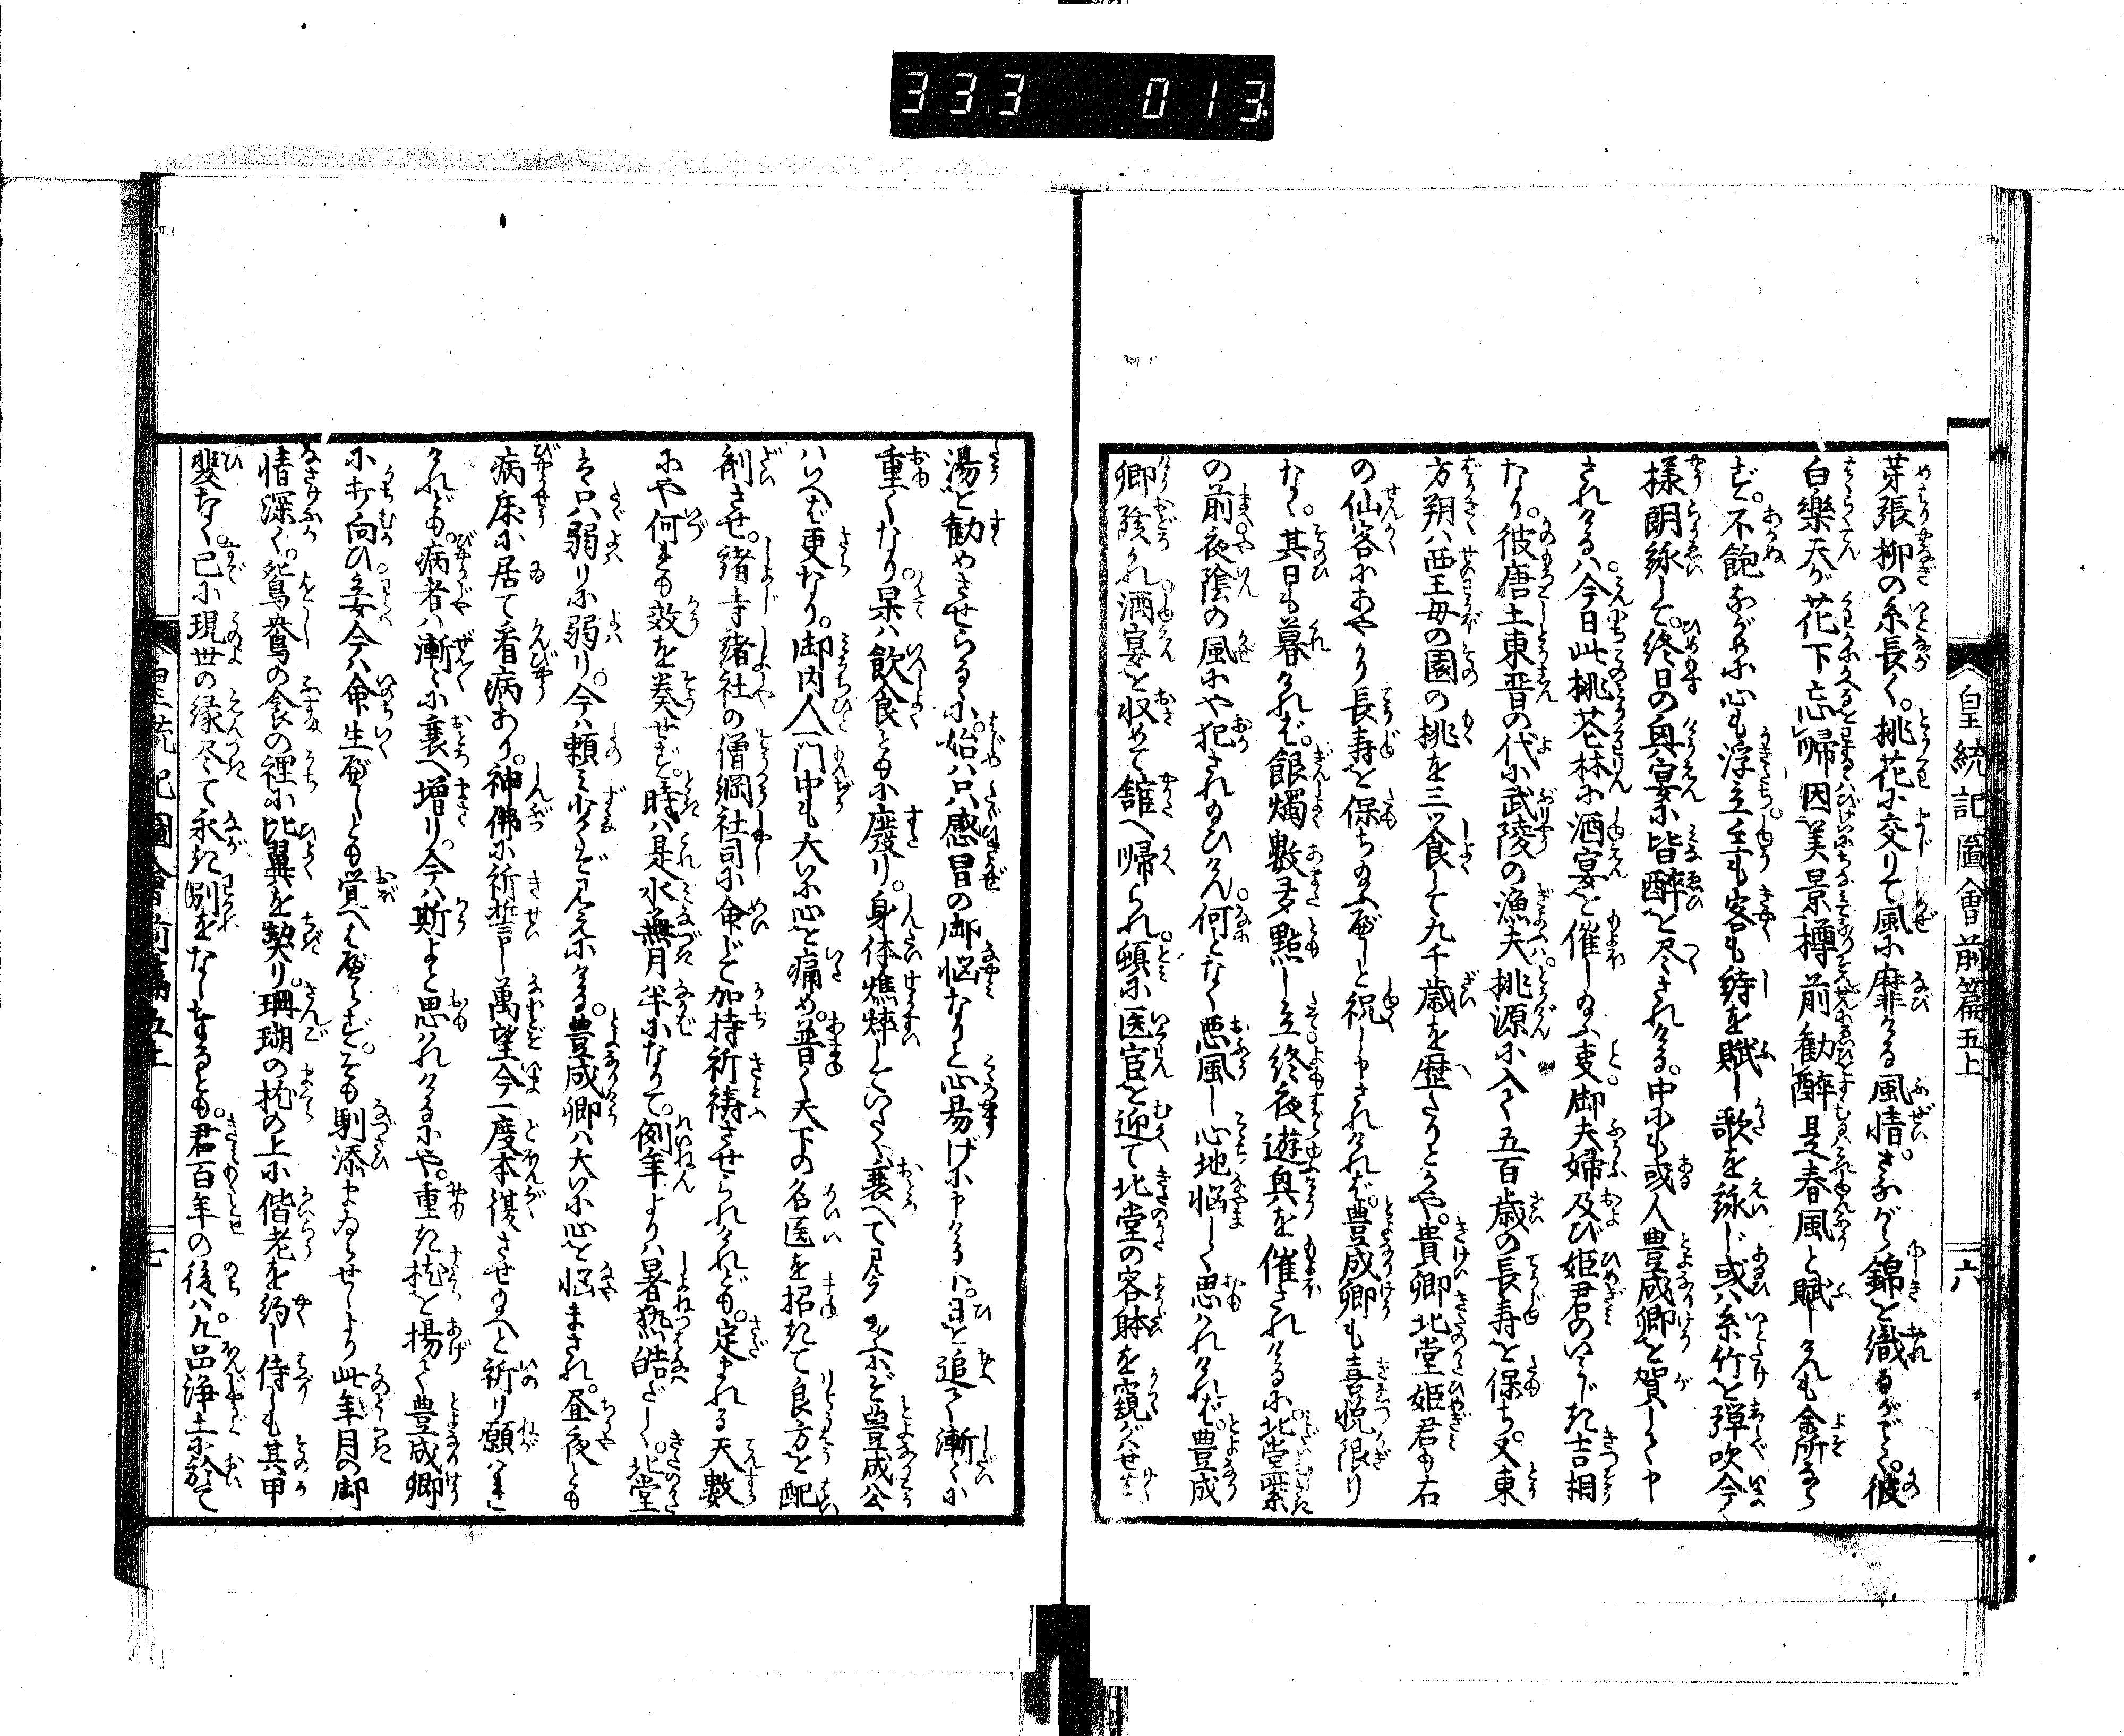 333 013
皇統記圖會前篇五上
六
芽張柳の糸長く。桃花に交りて風に靡ける風情。さながら錦を織るがごとく。彼
白樂天が花下忘帰因美景樽前勧酔是春風と賦しけんも余所なら
ず。不飽ながめに心も浮立。主も客も詩を賦し歌を詠じ或ハ糸竹を弾吹今
様朗詠して。終日の興宴に皆酔を尽されける。中にも或人豊成卿を賀して申
されけるハ。今日此桃花林に酒宴を催し給ふ事。御夫婦及び姫君のいみじき吉相
なり。彼唐土東晋の代に武陵の漁夫ハ。桃源に入て五百歳の長寿を保ち。又東
方朔ハ西王母の園の桃を三ツ食して九千歳を歴たるとかや。貴卿北堂姫君も右
の仙客にあやかり長寿を保ち給ふべしと祝し申されけれバ。豊成卿も喜悦限り
なく。其日も暮けれバ。銀燭数多點し立終夜遊興を催されけるに。北堂紫
の前夜陰の風にや犯され給ひけん。何となく悪風し心地悩しく思ハれけれバ。豊成
卿驚かれ酒宴を収めて舘へ帰られ。頓に医官を迎て北堂の容躰を窺ハせ
湯を勧めさせらるるに。始ハ只感冒の御悩なりと心易げに申けるに。日を追て漸々に
重くなり。果ハ飲食ともに廢り。身体憔悴していたく衰へて見え給へバ豊成公
ハいへバ更なり。御内人一門中も大いに心を痛め。普く天下の名医を招きて良方を配
剤させ。諸寺諸社の僧綱社司に命じて加持祈祷させられけれども。定まれる天數
にや何れも效を奏せず。時ハ是水無月半になりて。例年よりハ暑熱酷だしく。北堂
ハ只弱りに弱り。今ハ頼ミ少くぞ見えにける。豊成卿ハ大いに心を悩まされ。昼夜とも
病床に居て看病あり。神佛に祈誓し萬望今一度本復させ給へと祈り願ハれ
けれども。病者ハ漸々に衰へ増り。今ハ斯よと思ハれけるにや。重き枕を揚て豊成卿
に打向ひ。妾今ハ命生べしとも覚へ候ハず。そも馴添まゐらせしより此年月の御
情深く。鴛鴦の衾の裡に比翼を契り。珊瑚の枕の上に偕老を約し侍しも其甲
斐なく。已に現世の縁尽て永き別をなしまゐるとも。君百年の後ハ九品浄土に於て
皇統記圖會前篇五上
七